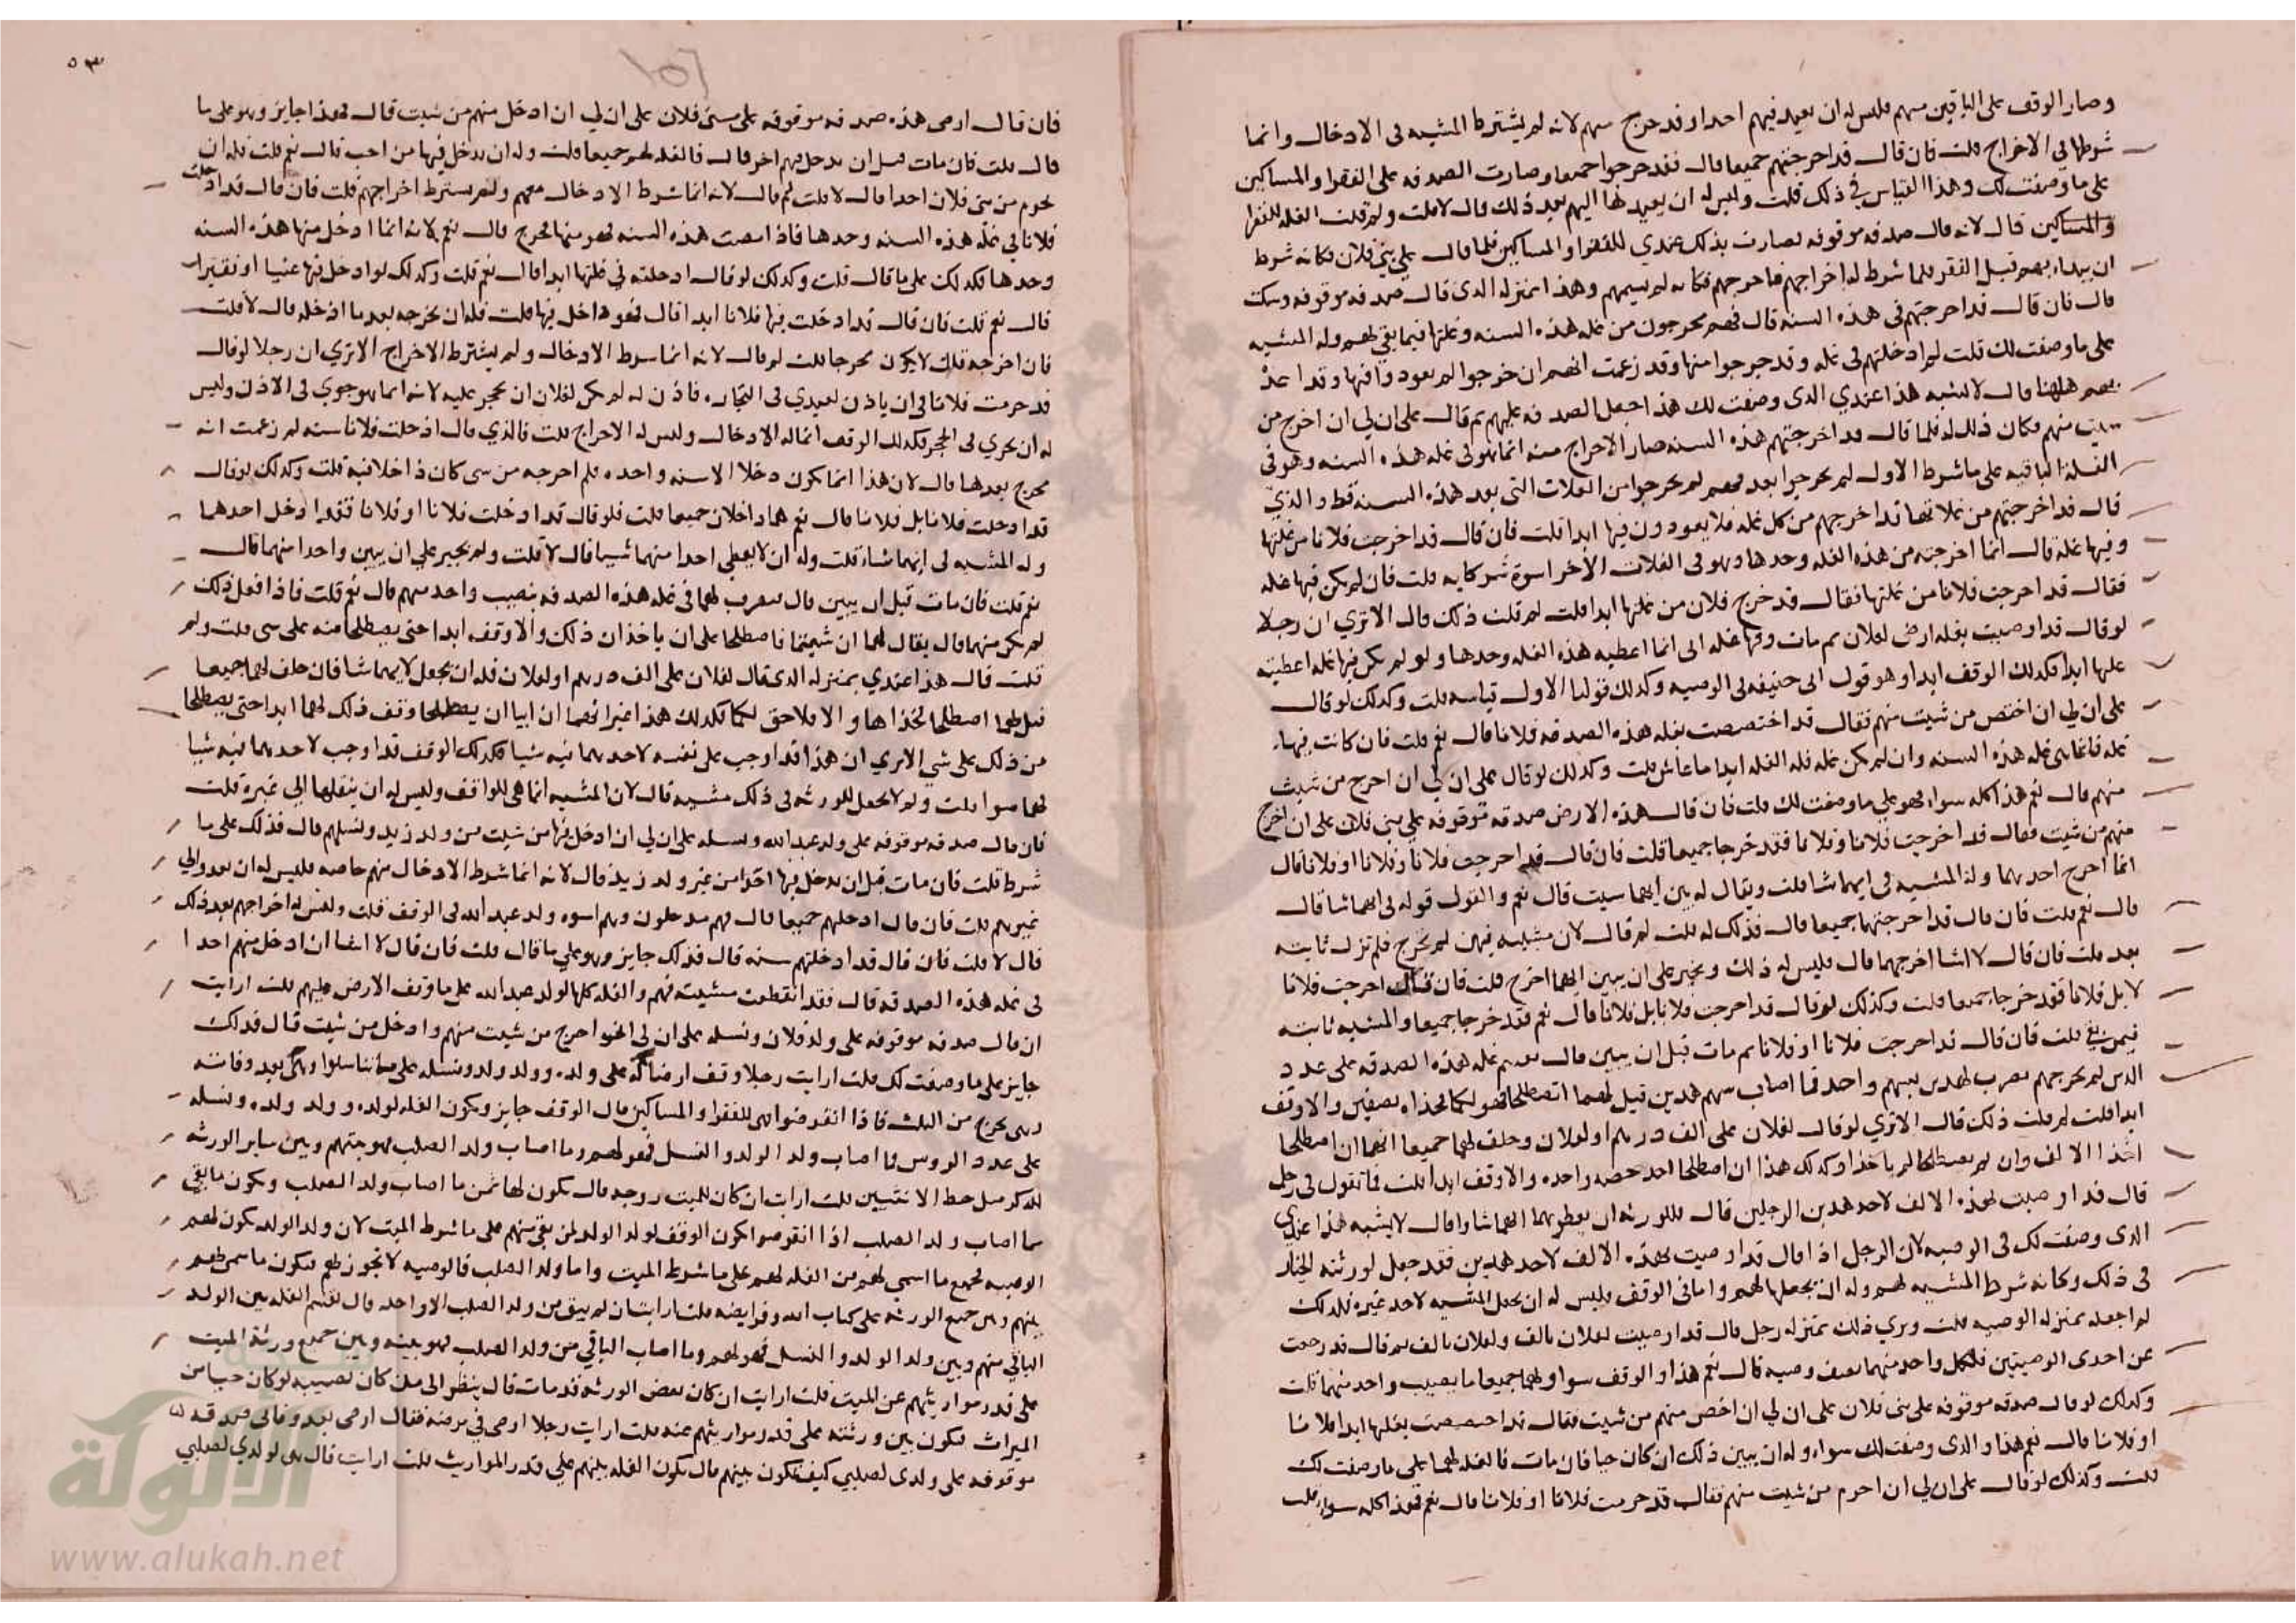 وصار الوقف على الباقين منهم فليس له ان يعيد فيهم احدا وقد خرج منهم لانه لم يشترط المشيه فى الادخال وانما
شرطها في الاخراج قلت فان قال قد اخرجتهم جميعا قال فقد خرجوا جميعا وصارت الصدقه على الفقرا والمساكين
على ما وصفت لك وهذا القياس في ذلك قلت وليس له ان يعيدها اليهم بعد ذلك قال لا قلت ولم قلت الغله للفقرا
والمساكين قال لانه قال صدقه موقوفه فصارت بذلك عندي للفقرا والمساكين فلما قال على بني فلان فكانه شرط
ان يبداء بهم قبل الفقر فلما شرط له اخراجهم فاخرجهم فكانه لم يسمهم وهذا بمنزله الذى قال صدقه موقوفه وسكت
قال فان قال قد اخرجتهم فى هذه السنه قال فهم يخرجون من غله هذه السنه وغلتها فيما بقي لهم وله المشيه
على ما وصفت لك قلت لم ادخلتهم في غله وقد خرجوا منها وقد زعمت انهم ان خرجوا لم يعودوا فيها وقدا عد
بهم هاهنا قال لا يشبه هذا عندي الذى وصفت لك هذا اجعل الصدقه عليهم ثم قال على ان لي ان اخرج من
شيت منهم فكان ذلك له فلما قال قد اخرجتهم هذه السنه صار الاخراج منه انما هو فى غله هذه السنه وهو فى
الغلة الباقيه على ما شرط الاول لم يخرجوا بعد فهم لم يخرجوا من الغلات التى بعد هذه السنه فقط والذي
قال قد اخرجتهم من غلاتها قد اخرجهم من كل غله فلا يعودون فيها ابدا قلت فان قال قد اخرجت فلانا من غلتها
وفيها غلة قال انما اخرجته من هذه الغله وحدها وهو فى الغلات الاخر اسوة شركايه قلت فان لم يكن فيها غله
فقال قد اخرجت فلانا من غلتها فقال قد خرج فلان من غلتها ابدا قلت لم قلت ذلك قال الا تري ان رجلا
لو قال قد اوصيت بغله ارضى لفلان ثم مات وفيها غله انى انما اعطيه هذه الغله وحدها ولو لم يكن فيها غله اعطيته
غلتها ابدا فكذلك الوقف ابدا وهو قول ابى حنيفه فى الوصيه وكذلك قولنا الاول قياسه قلت وكذلك لو قال
على ان لي ان اختص من شيت منهم فقال قد اختصصت بغله هذه الصدقه فلانا قال نعم قلت فان كانت فيها
غله فانما هى غله هذه السنه وان لم يكن غله فله الغله ابدا ما عاش قلت وكذلك لو قال على ان لي ان اخرج من شيت
منهم قال نعم هذا كله سواء فهو على ما وصفت لك قلت فان قال هذه الارض صدقه موقوفه على بني فلان على ان اخرج
منهم من شيت فقال قد اخرجت فلانا وفلانا فقد خرجا جميعا قلت فان قال قد اخرجت فلانا وفلانا او فلانا قال
انما اخرج احدهما وله المشيه فى ايهما شا قلت ويقال له بين ايهما شيت قال نعم والقول قوله فى ايهما شا قال
قال نعم قلت فان قال قد اخرجتهما جميعا قال فذلك له قلت لم قال لان مشيه فيمن لم يخرج فلم تزل ثابته
بعد قلت فان قال لا اشا اخرجهما قال فليس له ذلك ويجبر على ان يبين ايهما اخرج قلت فان قال اخرجت فلانا
لا بل فلانا فقد خرجا جميعا قلت وكذلك لو قال قد اخرجت فلانا بل فلانا قال نعم فقد خرجا جميعا والمشيه ثابته
فيمن بقي قلت فان قال قد اخرجت فلانا او فلانا ثم مات قبل ان يبين قال تقسم غله هذه الصدقه على عدد
الذين لم يخرجهم يضرب لهذين بسهم واحد فما اصاب سهم هذين قيل لهما اتصطلحا فهو لكما فخذاه نصفين والا وقف
ابدا قلت لم قلت ذلك قال الا تري لو قال لفلان على الف درهم او لفلان وحلف لهما جميعا انهما ان اصطلحا
اخذا الالف وان لم يصطلحا لم ياخذا وكذلك هذا ان اصطلحا اخذ حصه واحده والا وقف ابدا قلت فما تقول فى رجل
قال قد اوصيت بهذه الالف لاحد هذين الرجلين قال فللورثه ان يعطوهما ايهما شاوا قال لا يشبه هذا عندي
الذى وصفت لك فى الوصيه لان الرجل اذا قال قد اوصيت بهذه الالف لاحد هذين فقد جعل لورثته الخيار
فى ذلك وكانه شرط المشيه لهم وله ان يجعلها لهم واما فى الوقف فليس له ان يجعل المشيه لاحد غيره فلذلك
لم اجعله بمنزله الوصيه قلت ويري ذلك بمنزله رجل قال قد اوصيت لفلان بالف ولفلان بالف ثم قال قد رجعت
عن احدى الوصيتين فلكل واحد منهما نصف وصيه قال نعم هذا والوقف سوا ولهما جميعا ما يصيب واحد منهما قلت
وكذلك لو قال صدقه موقوفه على بنى فلان على ان لي ان اخص منهم من شيت فقال قد اخصصت بغلتها ابدا فلانا
او فلانا قال نعم هذا والذى وصفت لك سواء وله ان يبين ذلك ان كان حيا فان مات فالغله لهما على ما وصفت لك
قلت وكذلك لو قال على ان لي ان احرم من شيت منهم فقال قد حرمت فلانا او فلانا قال نعم فهذا كله سواء قلت
٥٣
فان قال ارضى هذه صدقه موقوفه على بنى فلان على ان لي ان ادخل منهم من شيت قال فهذا جايز وهو على ما
قال قلت فان مات قبل ان يدخل فيهم اخر قال فالغله لهم جميعا قلت وله ان يدخل فيها من احب قال نعم قلت فله ان
يحرم من بنى فلان احدا قال لا قلت لم قال لانه انما شرط الادخال معهم ولم يشترط اخراجهم قلت فان قال قد ادخلت
فلانا في غلة هذه السنه وحدها فاذا مضت هذه السنه فهو منها يخرج قال نعم لانه انما ادخل منها هذه السنه
وحدها فكذلك على ما قال قلت وكذلك لو قال ادخلته في غلتها ابدا قال نعم قلت وكذلك لو ادخل فيها غنيا او فقيرا
قال نعم قلت فان قال قد ادخلت فيها فلانا ابدا قال فهو داخل فيها قلت فله ان يخرجه بعد ما ادخله قال لا قلت
فان اخرجه قال لا يكون مخرجا قلت لم قال لانه انما شرط الادخال ولم يشترط الاخراج الا تري ان رجلا لو قال
قد حرمت فلانا فى ان ياذن لعبدي فى التجاره فاذن له لم يكن لفلان ان يحجر عليه لانه انما هو جري فى الاذن وليس
له ان يجري فى الحجر فكذلك الوقف انما له الادخال وليس له الاخراج قلت فالذي قال ادخلت فلانا سنه لم زعمت انه
يخرج بعدها قال لان هذا انما يكون دخلا الا سنه واحده فلم اخرجه من شى كان داخلا فيه قلت وكذلك لو قال
قد ادخلت فلانا بل فلانا قال نعم هما داخلان جميعا قلت فلو قال قد ادخلت فلانا او فلانا فقد ادخل احدهما
وله المشيه فى ايهما شاء قلت وله ان لا يعطي احدا منهما شيا قال لا قلت ولم يجبر على ان يبين واحدا منهما قال
نعم قلت فان مات قبل ان يبين قال يضرب لهما فى غله هذه الصدقه بنصيب واحد منهم قال نعم قلت فاذا فعل ذلك
لمن يكن منهما قال يقال لهما ان شيتما فاصطلحا على ان ياخذان ذلك والا وقف ابدا حتى يصطلحا منه على شى قلت ولم
قلت قال هذا عندي بمنزله الذى قال لفلان على الف درهم او لفلان فله ان يجعل لايهما شا فان حلف لهما جميعا
قيل لهما اصطلحا فخذاها والا فلا حق لكما فكذلك هذا غير انهما ان ابيا ان يصطلحا وقف ذلك لهما ابدا حتى يصطلحا
من ذلك على شي الا تري ان هذا قد اوجب على نفسه لاحدهما فيه شيا فكذلك الوقف قد اوجب لاحدهما فيه شيا
فهما سوا قلت ولم لا تجعل للورثه فى ذلك مشيه قال لان المشيه انما هي للواقف وليس له ان ينقلها الى غيره قلت
فان قال صدقه موقوفه على ولد عبد الله ونسله على ان لي ان ادخل فيها من شيت من ولد زيد ونسلهم قال فذلك على ما
شرط قلت فان مات قبل ان يدخل فيها احدا من غير ولد زيد قال لانه انما شرط الادخال منهم خاصه فليس له ان يعدو الى
غيرهم قلت فان قال ادخلهم جميعا قال فهم مدخلون وهم اسوه ولد عبد الله فى الوقف قلت وليس له اخراجهم بعد ذلك
قال لا قلت فان قال قد ادخلتهم سنه قال فذلك جايز وهو على ما قال قلت فان قال لا اشا ان ادخل منهم احدا
فى غله هذه الصدقه قال فقد انقطعت مشيته فيهم والغله كلها لولد عبد الله على ما وقف الارض عليهم قلت ارايت
ان قال صدقه موقوفه على ولد فلان ونسله على ان لى اخراج من شيت منهم وادخل من شيت قال فذلك
جايز على ما وصفت لك قلت ارايت رجلا وقف ارضا له على ولده وولد ولده ونسله على ما تناسلوا وهى بعد وفاته
وهى تخرج من الثلث فاذا انقرضوا فهى للفقرا والمساكين قال الوقف جايز ويكون الغله لولده وولد ولده ونسله
على عدد الروس فما اصاب ولد الولد والنسل فهو لهم وما اصاب ولد الصلب فهو بينهم وبين ساير الورثه
للذكر مثل حظ الانثيين قلت ارايت ان كان للميت زوجه قال يكون لها ثمن ما اصاب ولد الصلب ويكون ما بقي
مما اصاب ولد الصلب اذا انقرضوا يكون الوقف لولد الولد لمن بقي منهم على ما شرط الميت لان ولد الولد يكون لهم
الوصيه بجميع ما اسمي لهم من الغله لهم على ما شرط الميت واما ولد الصلب فالوصيه لا تجوز لهم فيكون ما سمى لهم
بينهم وبين جميع الورثه على كتاب الله وفرايضه قلت ارايت ان لم يبق من ولد الصلب الا واحد قال تقسم الغله بين الولد
الباقي منهم وبين ولد الولد والنسل فهو لهم وما اصاب الباقي من ولد الصلب فهو بينه وبين جميع ورثة الميت
على قدر مواريثهم عن الميت قلت ارايت ان كان بعض الورثه قد مات قال ينظر الى من كان نصيبه لو كان حيا من
الميراث فيكون بين ورثته على قدر مواريثهم عنه قلت ارايت رجلا اوصى في مرضه فقال ارضى بعد وفاتى صدقه
موقوفه على ولدى لصلبي كيف تكون بينهم قال يكون الغله بينهم على قدر المواريث قلت ارايت قال هى لولدي لصلبي
الألوكة
www.alukah.net